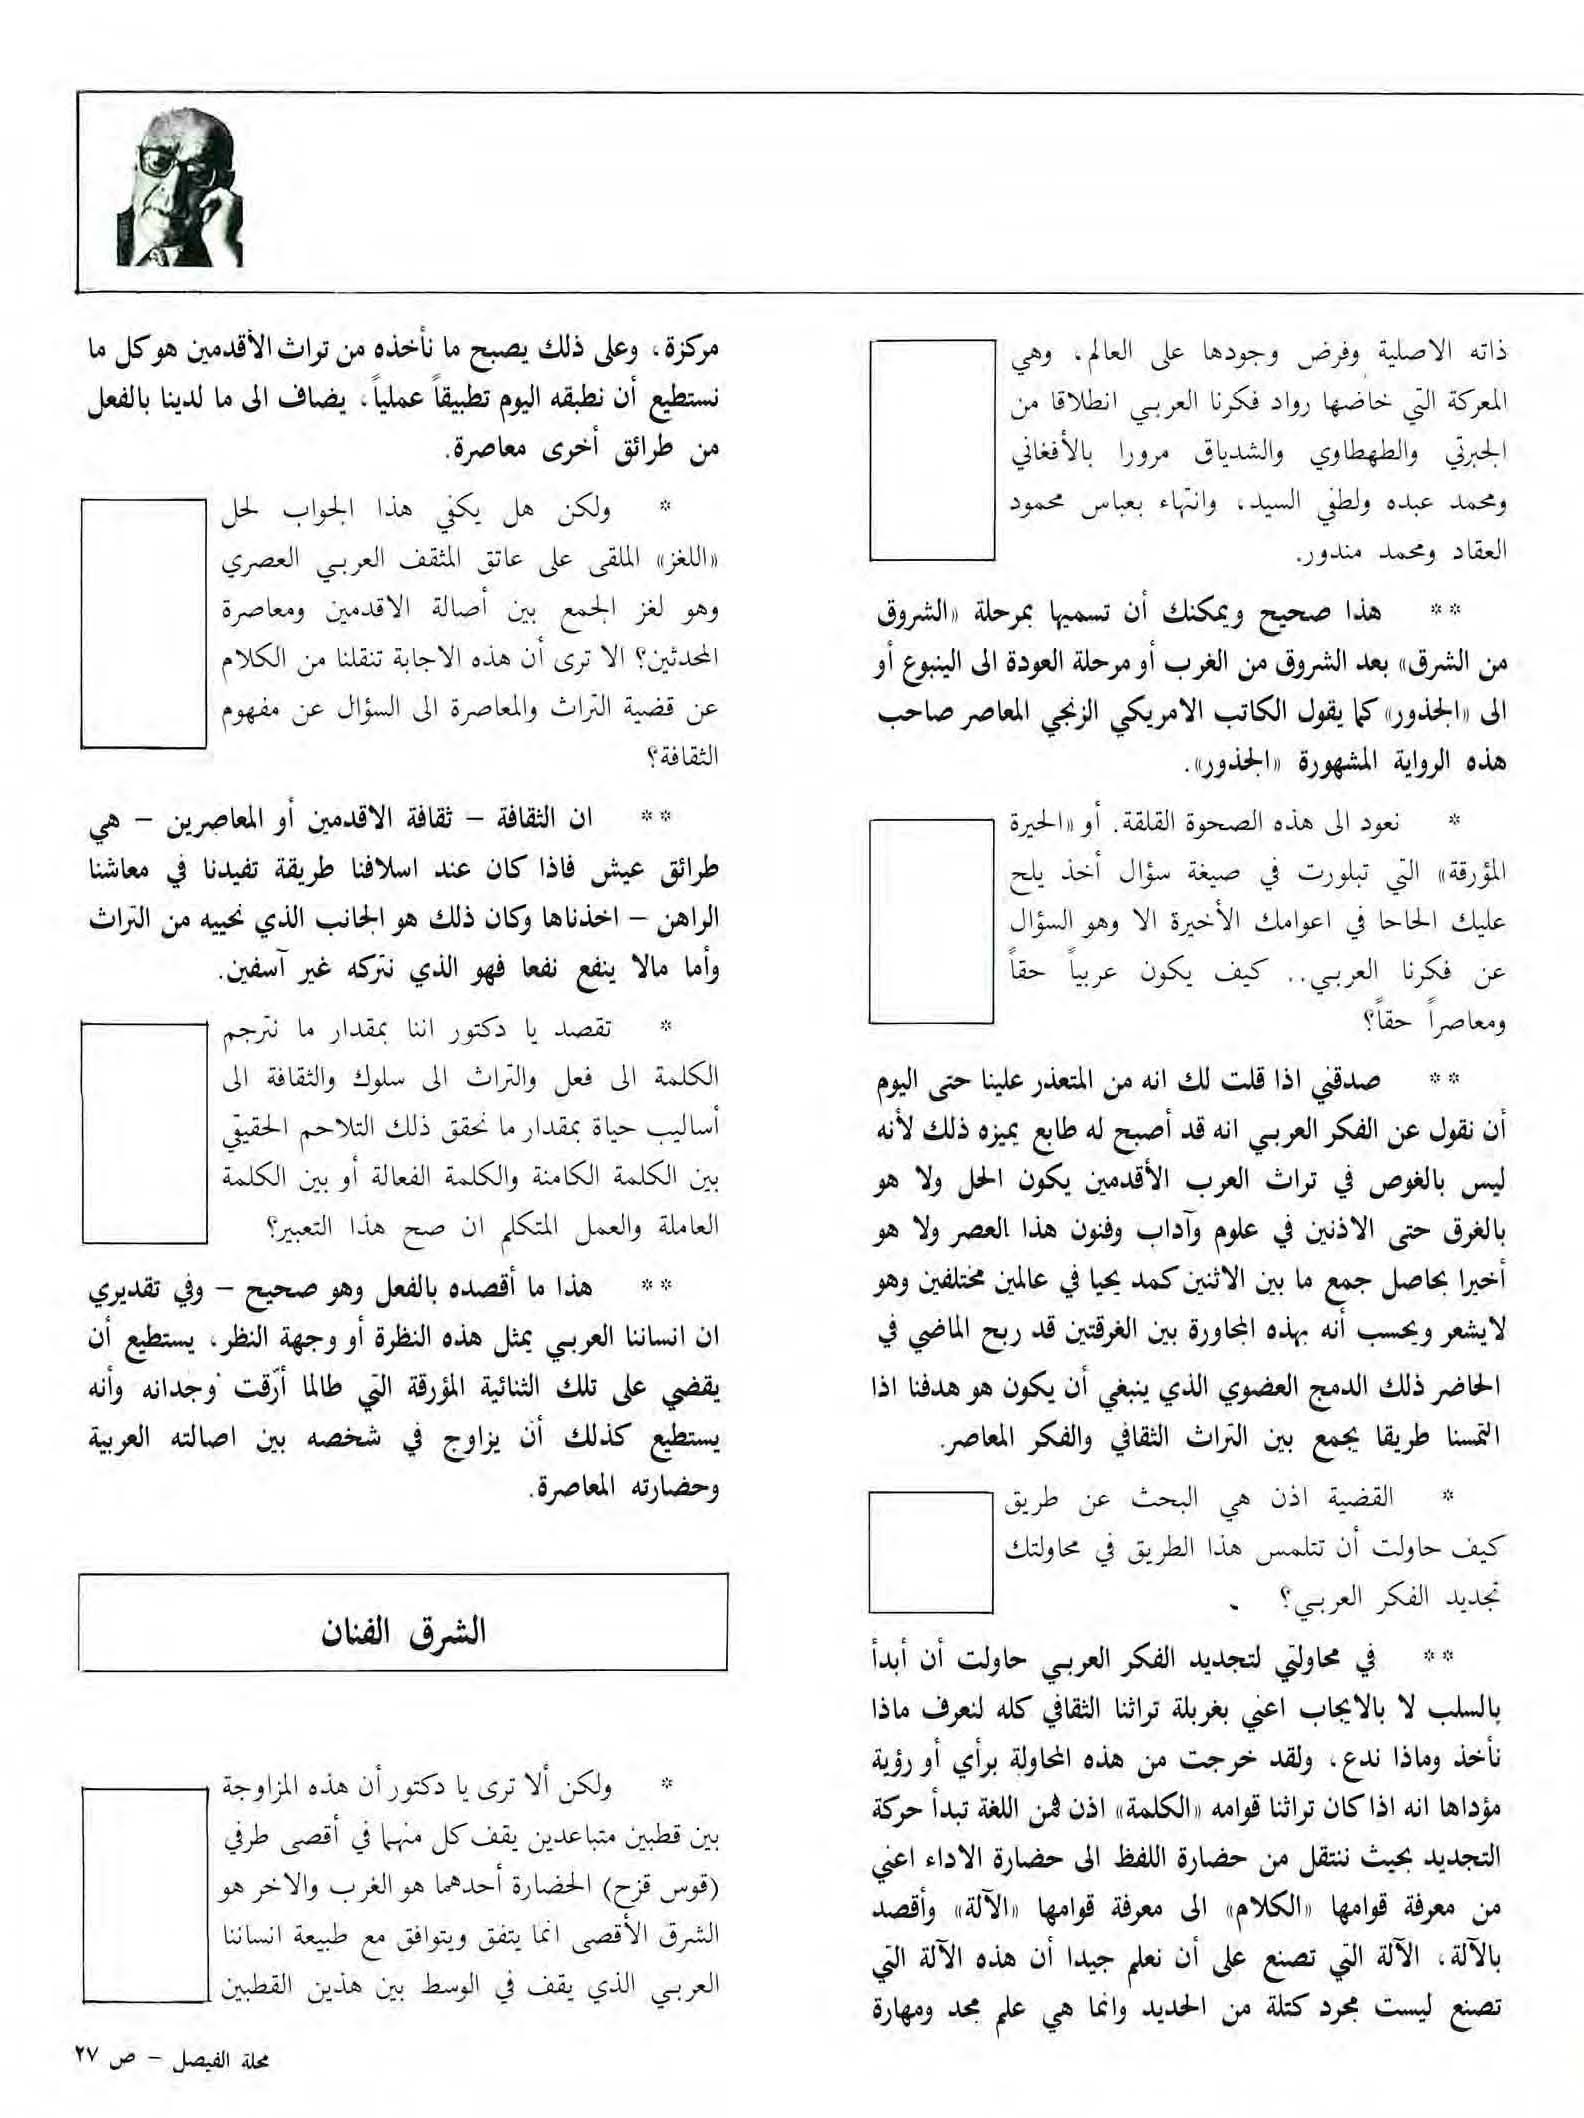 ذاته الاصلية وفرض وجودها على العالم، وهي
المعركة التي خاضها رواد فكرنا العربي انطلاقا من
الجبرتي والطهطاوي والشدياق مرورا بالأفغاني
ومحمد عبده ولطفي السيد، وانتهاء بعباس محمود
العقاد ومحمد مندور.
** هذا صحيح ويمكنك أن تسميها بمرحلة «الشروق
من الشرق» بعد الشروق من الغرب أو مرحلة العودة الى الينبوع أو
الى «الجذور» كما يقول الكاتب الامريكي الزنجي المعاصر صاحب
هذه الرواية المشهورة «الجذور».
* نعود الى هذه الصحوة القلقة. أو «الحيرة
المؤرقة» التي تبلورت في صيغة سؤال أخذ يلح
عليك الحاحا في اعوامك الأخيرة الا وهو السؤال
عن فكرنا العربي.. كيف يكون عربياً حقاً
ومعاصراً حقاً؟
** صدقني اذا قلت لك انه من المتعذر علينا حتى اليوم
أن نقول عن الفكر العربي انه قد أصبح له طابع يميزه ذلك لأنه
ليس بالغوص في تراث العرب الأقدمين يكون الحل ولا هو
بالغرق حتى الاذنين في علوم وآداب وفنون هذا العصر ولا هو
أخيرا بحاصل جمع ما بين الاثنين كمد يحيا في عالمين مختلفين وهو
لا يشعر ويحسب أنه بهذه المجاورة بين الغرقتين قد ربح الماضي في
الحاضر ذلك الدمج العضوي الذي ينبغي أن يكون هو هدفنا اذا
التمسنا طريقا يجمع بين التراث الثقافي والفكر المعاصر.
* القضية اذن هي البحث عن طريق
كيف حاولت أن تتلمس هذا الطريق في محاولتك
تجديد الفكر العربي؟
** في محاولتي لتجديد الفكر العربي حاولت أن أبدأ
بالسلب لا بالايجاب اعني بغربلة تراثنا الثقافي كله لنعرف ماذا
نأخذ وماذا ندع، ولقد خرجت من هذه المحاولة برأي أو رؤية
مؤداها انه اذا كان تراثنا قوامه «الكلمة» اذن فمن اللغة تبدأ حركة
التجديد بحيث ننتقل من حضارة اللفظ الى حضارة الاداء اعني
من معرفة قوامها «الكلام» الى معرفة قوامها «الآلة» وأقصد
بالآلة، الآلة التي تصنع على أن نعلم جيدا أن هذه الآلة التي
تصنع ليست مجرد كتلة من الحديد وانما هي علم مجد ومهارة
مركزة، وعلى ذلك يصبح ما نأخذه من تراث الأقدمين هو كل ما
نستطيع أن نطبقه اليوم تطبيقاً عملياً، يضاف الى ما لدينا بالفعل
من طرائق أخرى معاصرة.
* ولكن هل يكفي هذا الجواب لحل
«اللغز» الملقى على عاتق المثقف العربي العصري
وهو لغز الجمع بين أصالة الاقدمين ومعاصرة
المحدثين؟ الا ترى أن هذه الاجابة تنقلنا من الكلام
عن قضية التراث والمعاصرة الى السؤال عن مفهوم
الثقافة؟
** ان الثقافة – ثقافة الاقدمين أو المعاصرين – هي
طرائق عيش فاذا كان عند اسلافنا طريقة تفيدنا في معاشنا
الراهن – اخذناها وكان ذلك هو الجانب الذي نحييه من التراث
وأما مالا ينفع نفعا فهو الذي نتركه غير آسفين.
* تقصد يا دكتور اننا بمقدار ما نترجم
الكلمة الى فعل والتراث الى سلوك والثقافة الى
أساليب حياة بمقدار ما نحقق ذلك التلاحم الحقيقي
بين الكلمة الكامنة والكلمة الفعالة أو بين الكلمة
العاملة والعمل المتكلم ان صح هذا التعبير؟
** هذا ما أقصده بالفعل وهو صحيح – وفي تقديري
ان انساننا العربي يمثل هذه النظرة أو وجهة النظر، يستطيع أن
يقضي على تلك الثنائية المؤرقة التي طالما أرّقت وجدانه وأنه
يستطيع كذلك أن يزاوج في شخصه بين اصالته العربية
وحضارته المعاصرة.
الشرق الفنان
* ولكن ألا ترى يا دكتور أن هذه المزاوجة
بين قطبين متباعدين يقف كل منهما في أقصى طرفي
(قوس قزح) الحضارة أحدهما هو الغرب والاخر هو
الشرق الأقصى انما يتفق ويتوافق مع طبيعة انساننا
العربي الذي يقف في الوسط بين هذين القطبين
مجلة الفيصل – ص ٢٧